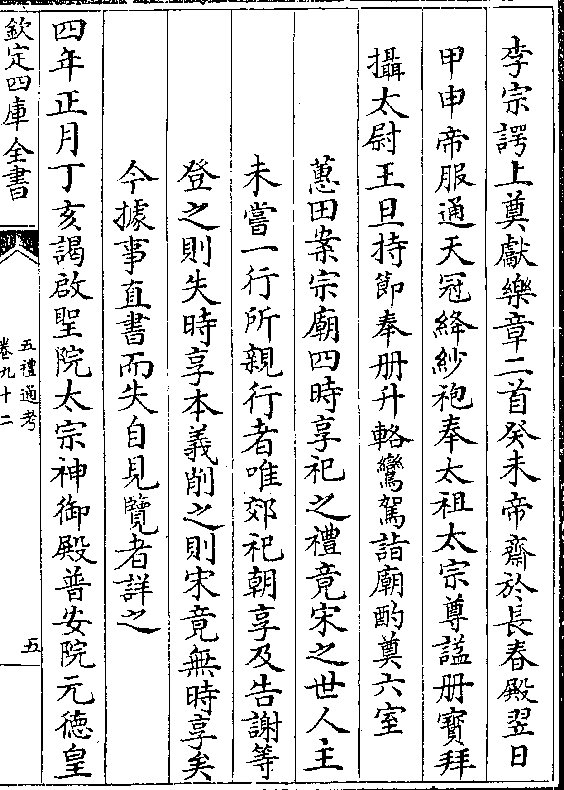 李宗諤上奠獻樂章二首癸未帝齋於長春殿翌日
甲申帝服通天冠絳紗袍奉太祖太宗尊謚册寶拜
攝太尉王旦持節奉册升輅鸞駕詣廟酌奠六室
蕙田案宗廟四時享祀之禮竟宋之世人主
未嘗一行所親行者唯郊祀朝享及告謝等
登之則失時享本義削之則宋竟無時享矣
今據事直書而失自見覽者詳之
四年正月丁亥謁啟聖院太宗神御殿普安院元德皇
欽定四庫全書
五禮通考
卷九十二
五